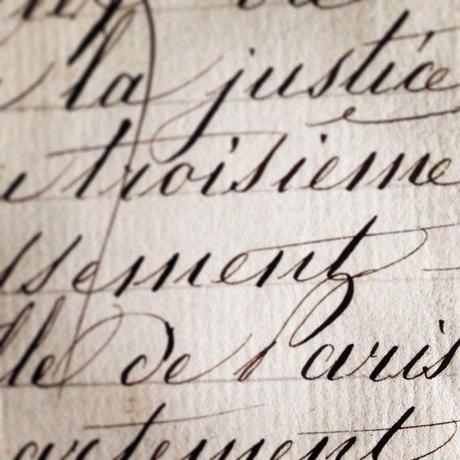 la justice
troisieme
ssement
lle de Paris
artement